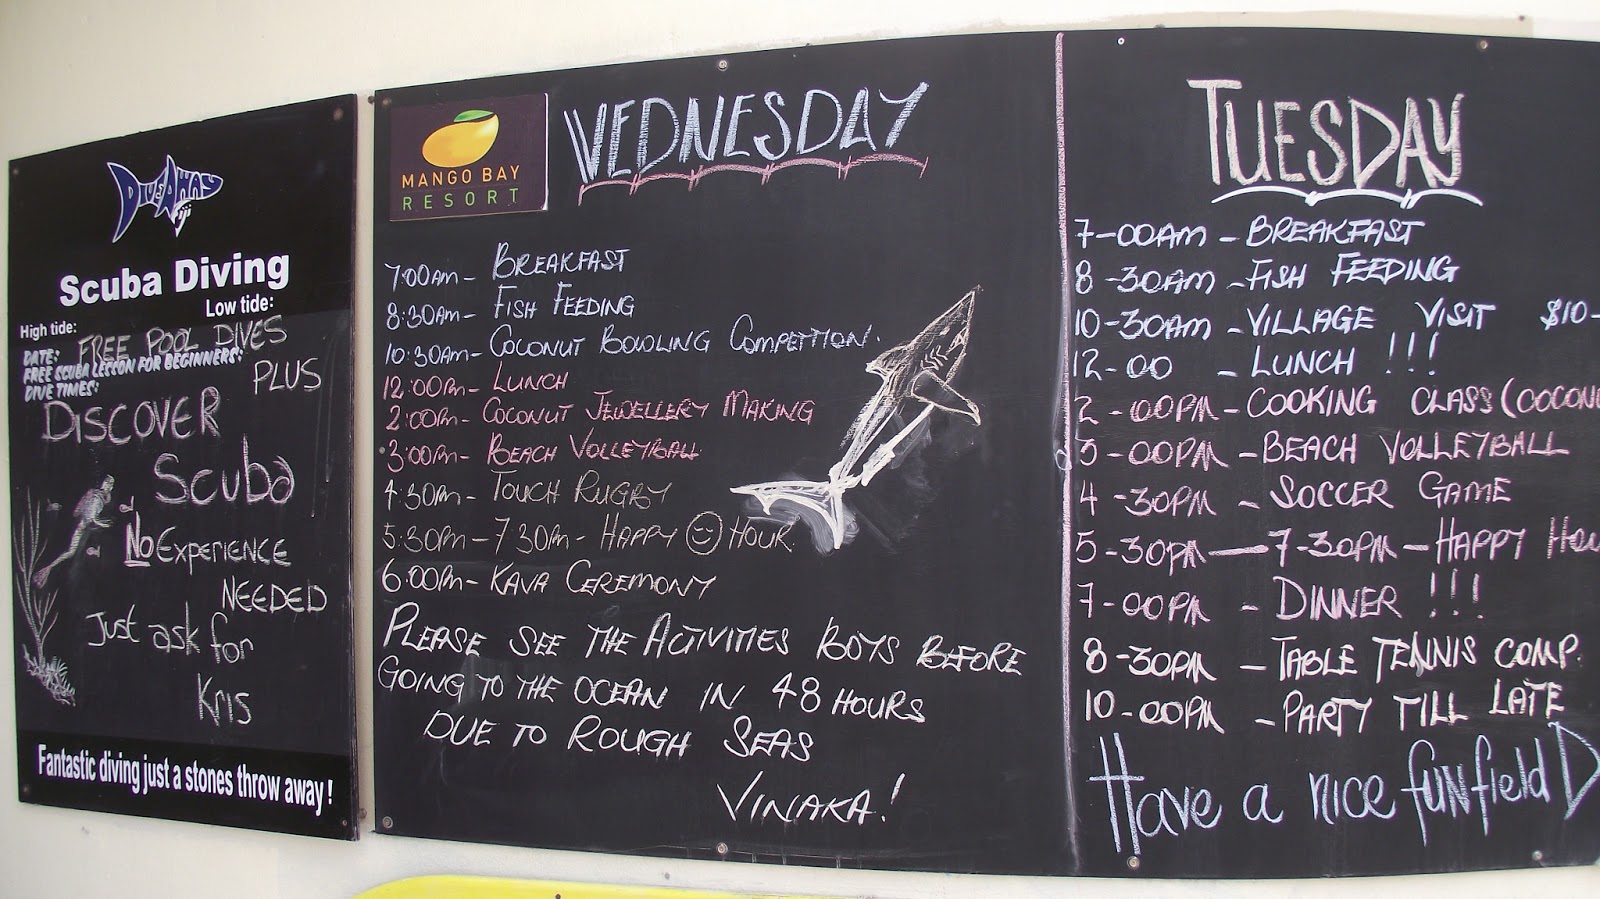 DIVEAWAY
Fiji
Scuba Diving
Low tide:
High tide:
FREE POOL DIVES
DATE:
FREE SCUBA LESSON FOR BEGINNERS:
PLUS
DIVE TIMES:
DISCOVER
SCUBA
NO EXPERIENCE
NEEDED
Just ask for
Kris
Fantastic diving just a stones throw away!
MANGO BAY
RESORT
WEDNESDAY
7:00AM- BREAKFAST
8:30AM- FISH FEEDING
10:30AM- COCONUT BOWLING COMPETITION.
12:00PM- LUNCH
2:00PM- COCONUT JEWELLERY MAKING
3:00PM- BEACH VOLLEYBALL
4:30PM- TOUCH RUGBY
5:30PM-7 30PM- HAPPY HOUR.
6:00PM- KAVA CEREMONY
PLEASE SEE THE ACTIVITIES BOYS BEFORE
GOING TO THE OCEAN IN 48 HOURS
DUE TO ROUGH SEAS
VINAKA!
TUESDAY
7-00AM - BREAKFAST
8-30AM - FISH FEEDING
10-30AM - VILLAGE VISIT $10-
12-00 - LUNCH !!!
2-00PM - COOKING CLASS (COCONU
3-00PM - BEACH VOLLEYBALL
4-30PM - SOCCER GAME
5-30PM - 7-30PM - HAPPY HOU
7-00PM - DINNER !!!
8-30PM - TABLE TENNIS COMP.
10-00PM - PARTY TILL LATE
Have a nice funfield D